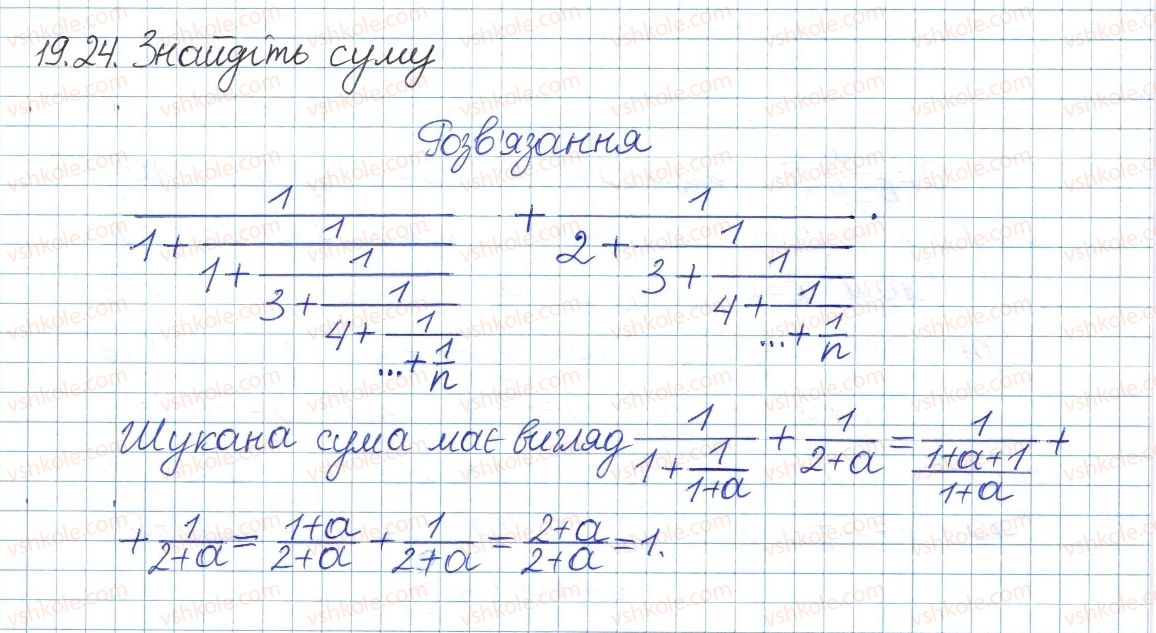 19.24. Знайдіть суму
Розв'язання
1/(1+1/(1+1/(3+1/(4+1/(...+1/n))))) + 1/(2+1/(3+1/(4+1/(...+1/n)))).
Шукана сума має вигляд 1/(1+1/(1+a)) + 1/(2+a) = 1/((1+a+1)/(1+a)) +
+ 1/(2+a) = (1+a)/(2+a) + 1/(2+a) = (2+a)/(2+a) = 1.